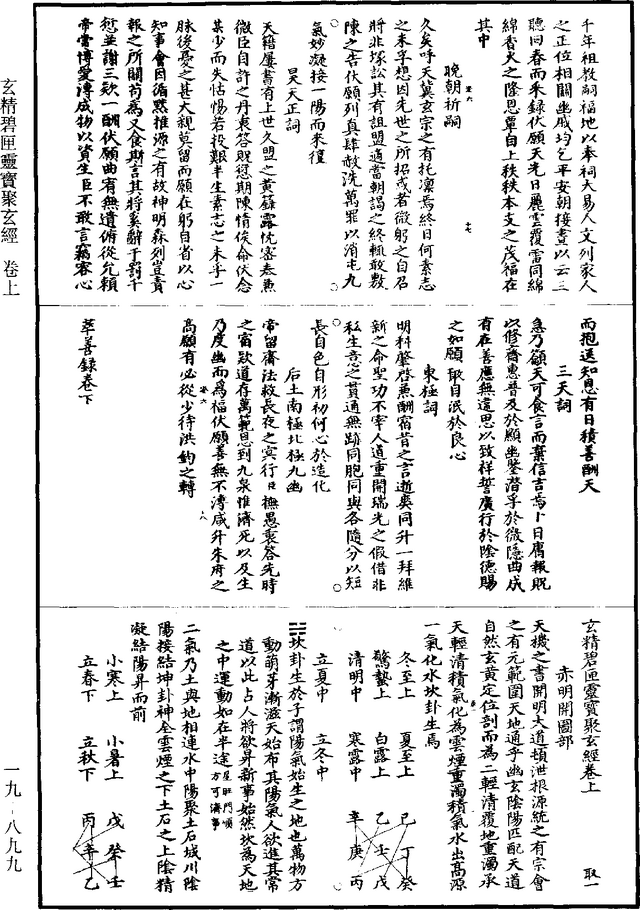 千年祖教嗣福地以奉祠大易人文列家人
之正位相關幽戚均乞平安朝接晝以云三
聽回春而来録伏願天光日麗雲覆雷同綿
綿香火之隆恩覃自上秩秩本支之茂福在
其中
晚朝祈嗣
久矣呼天冀玄宗之有托凛焉終日何素志
之未孚想因先世之所招或者微躬之自召
將非塚訟其有詛盟適當朝謁之終輒敢敷
陳之告伏願列真肆赦洗萬罪以消屯九
氣妙凝接一陽而来復
昊天正詞
天籍屢書有上世久盟之黄籙露忱宻奏無
微臣自許之丹衷答貺愆期陳情俟命伏念
某少而失怙惕若投艱半生素志之未孚一
脉後憂之甚大親莫留而願在躬自省以心
知事會因循黙推源之有故神明森列豈責
報之所關苟為又食斯言其將奚辭于罰千
愆並謝三欵一酬伏願曲宥無遺俯從允賴
帝嘗博愛溥成物以資生臣不敢言竊寄心
而抱送知恩有日積善酬天
三天詞
急乃籲天可食言而棄信吉焉卜日庸報貺
以修齋惠普及於顯幽鑒潜孚於微隱曲成
有在善應無遺思以致祥誓廣行於陰德賜
之如願取自泯於良心
東極詞
明科肇啓兼酬宿昔之言逝㷼同升一拜維
新之命聖功不宰人道重開瑞光之假借非
私生意之貫通無跡同胞同與各隨分以短
長自色自形初何心於造化
后土南極北極九幽
帝留齋法救長夜之冥行日撫愚衷答先時
之宿欵道存萬範思到九泉惟濟死以及生
乃度幽而為福伏願善無不溥咸升朱府之
高願有必從少待洪鈞之轉
萃善録卷下
玄精碧匣靈寶聚玄經卷上
取一
赤明開圖部
天機之書開明大道頓泄根源統之有宗會
之有元範圍天地通乎幽玄陰陽匹配天道
自然玄黄定位剖而為二輕清覆地重濁承
天輕清積氣化為雲煙重濁積氣水出高源
一氣化水坎卦生焉
冬至上 夏至上 己 丁 癸
驚蟄上 白露上 乙 壬 戊
清明中 寒露中 辛 庚 丙
立夏中 立冬中
☵坎卦生於子謂陽氣始生之地也萬物方
動萌芽漸滋天始布其陽氣人欲進其常
道以此占人將欲昇新事始然坎為天地
之中運動如在半途
二氣乃土與地相連水中陽聚土石城川陰
陽接結坤卦神全雲煙之下土石之上陰精
凝結陽昇而前
小寒上 小暑上 戊 癸 壬
立春下 立秋下 丙 辛 乙
玄精碧匣靈寶聚玄經 卷上
一九-八九九